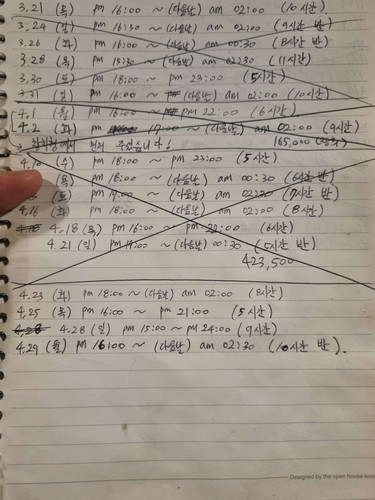 3.21 (목) pm 16:00 ~ (다음날) am 02:00 (10시간)
3.24 (일) pm 16:30 ~ (다음날) am 02:00 (9시간 반)
3.26 (화) pm 16:00 ~ (다음날) am 00:30 (8시간 반)
3.28 (목) pm 15:30 ~ (다음날) am 02:30 (11시간)
3.30 (토) pm 18:00 ~ pm 23:00 (5시간)
3.31 (일) pm 16:00 ~ (다음날) am 02:00 (10시간)
4.1 (월) pm 16:00 ~ pm 22:00 (6시간)
4.2 (화) pm 17:00 ~ (다음날) am 02:00 (9시간)
먼저 주셨습니다! 165,000
4.10 (수) pm 18:00 ~ pm 23:00 (5시간)
(목) pm 18:00 ~ (다음날) am 00:30 (6시간 반)
(토) pm 19:00 ~ (다음날) am 02:30 (7시간 반)
4.16 (화) pm 18:00 ~ (다음날) am 02:00 (8시간)
4.18 (목) pm 16:00 ~ pm 22:00 (6시간)
4.21 (일) pm 19:00 ~ (다음날) 00:30 (5시간 반)
423,500
4.23 (화) pm 18:00 ~ (다음날) am 02:00 (8시간)
4.25 (목) pm 16:00 ~ pm 21:00 (5시간)
4.28 (일) pm 15:00 ~ pm 24:00 (9시간)
4.29 (월) pm 16:00 ~ (다음날) am 02:30 (10시간 반).
Designed by the open house kore